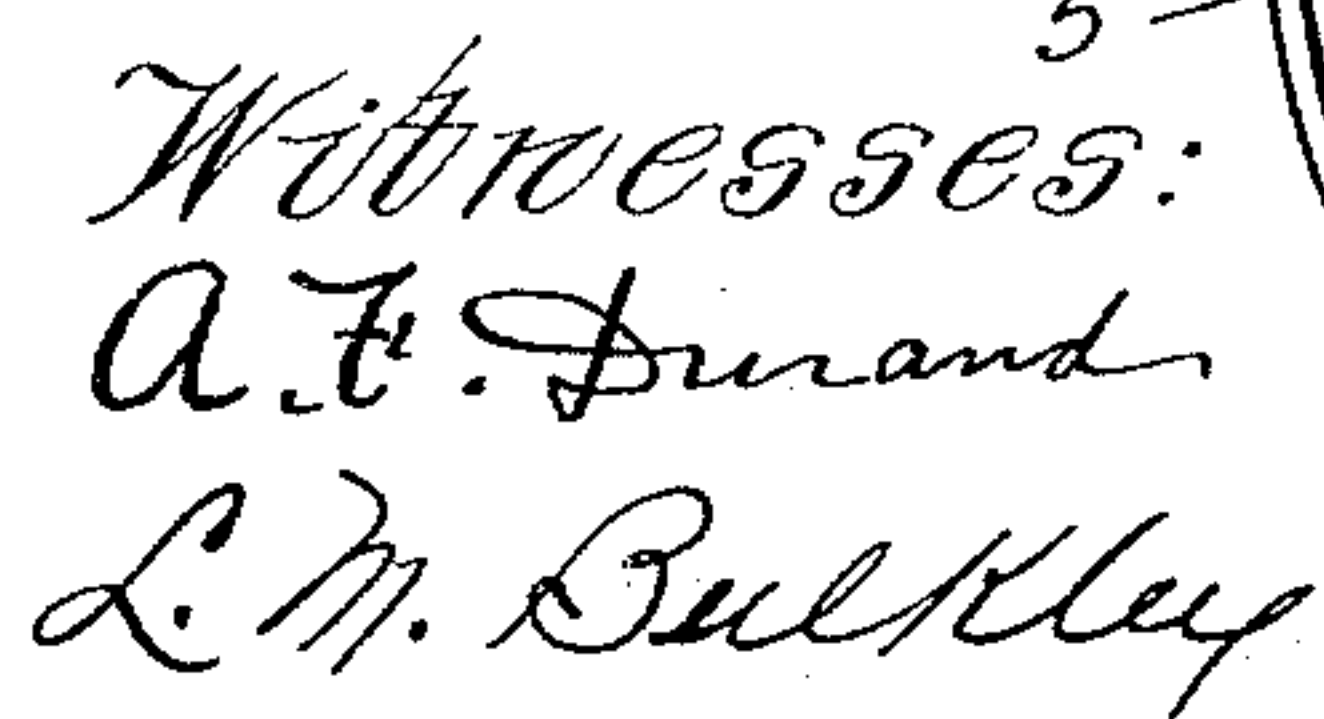 5
Witnesses:
A. F. Durand
L. M. Bulkley